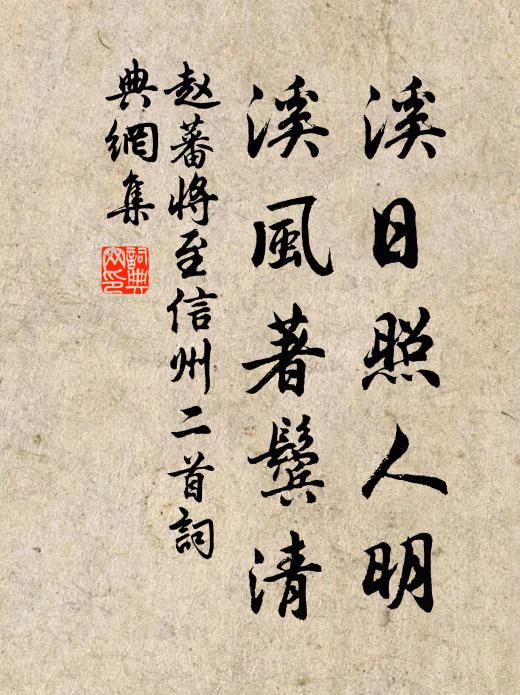 溪日照人明
溪風著鬢清
赵蕃將至信州二首詞
典網集
詞典